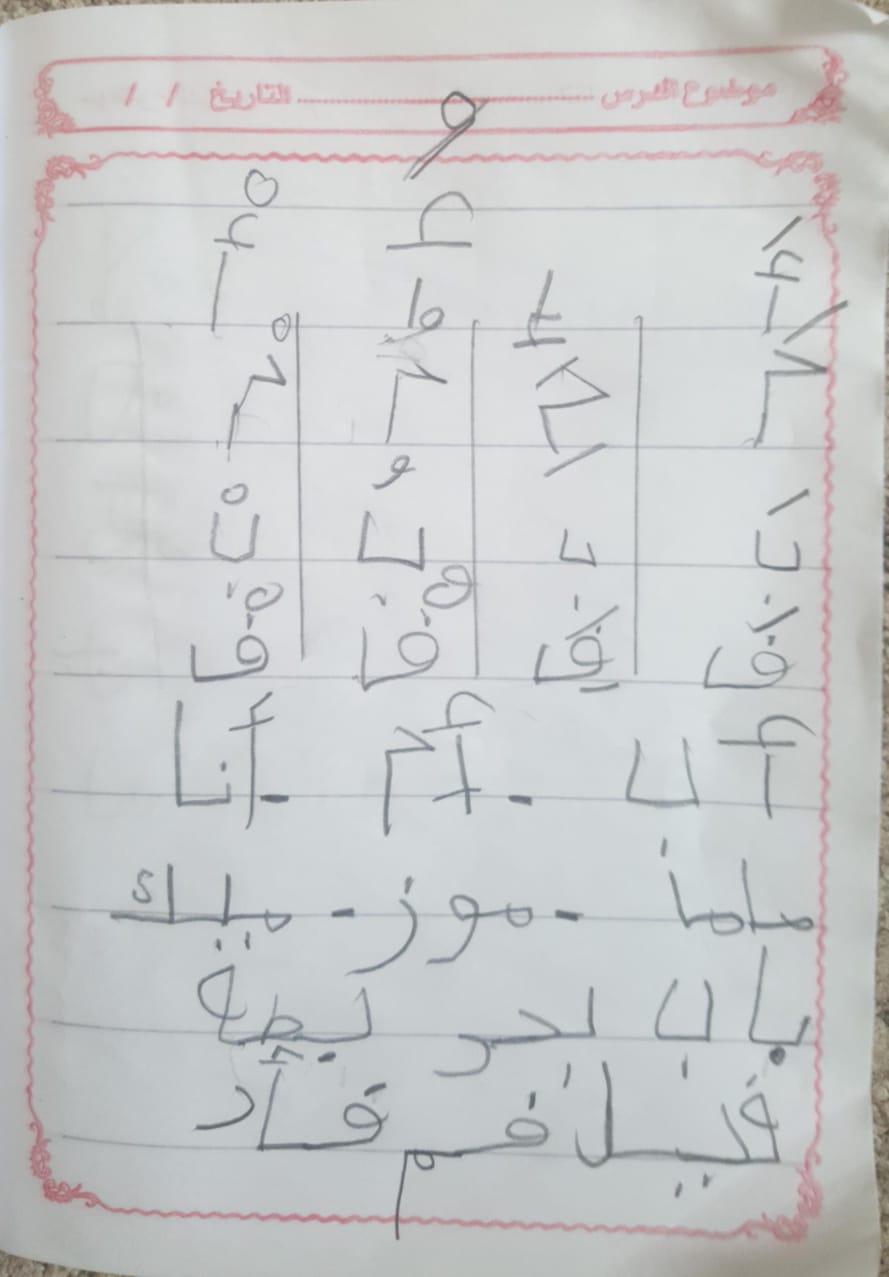 موضوع الدرس ........................ التاريخ / /
أَ إِ أُ أْ
مَ مِ مُ مْ
بَ بِ بُ بْ
فَ فِ فُ فْ
أب - أم - أنا
ماما - موز - ملك
باب بحر بطة
فيل فم فأر